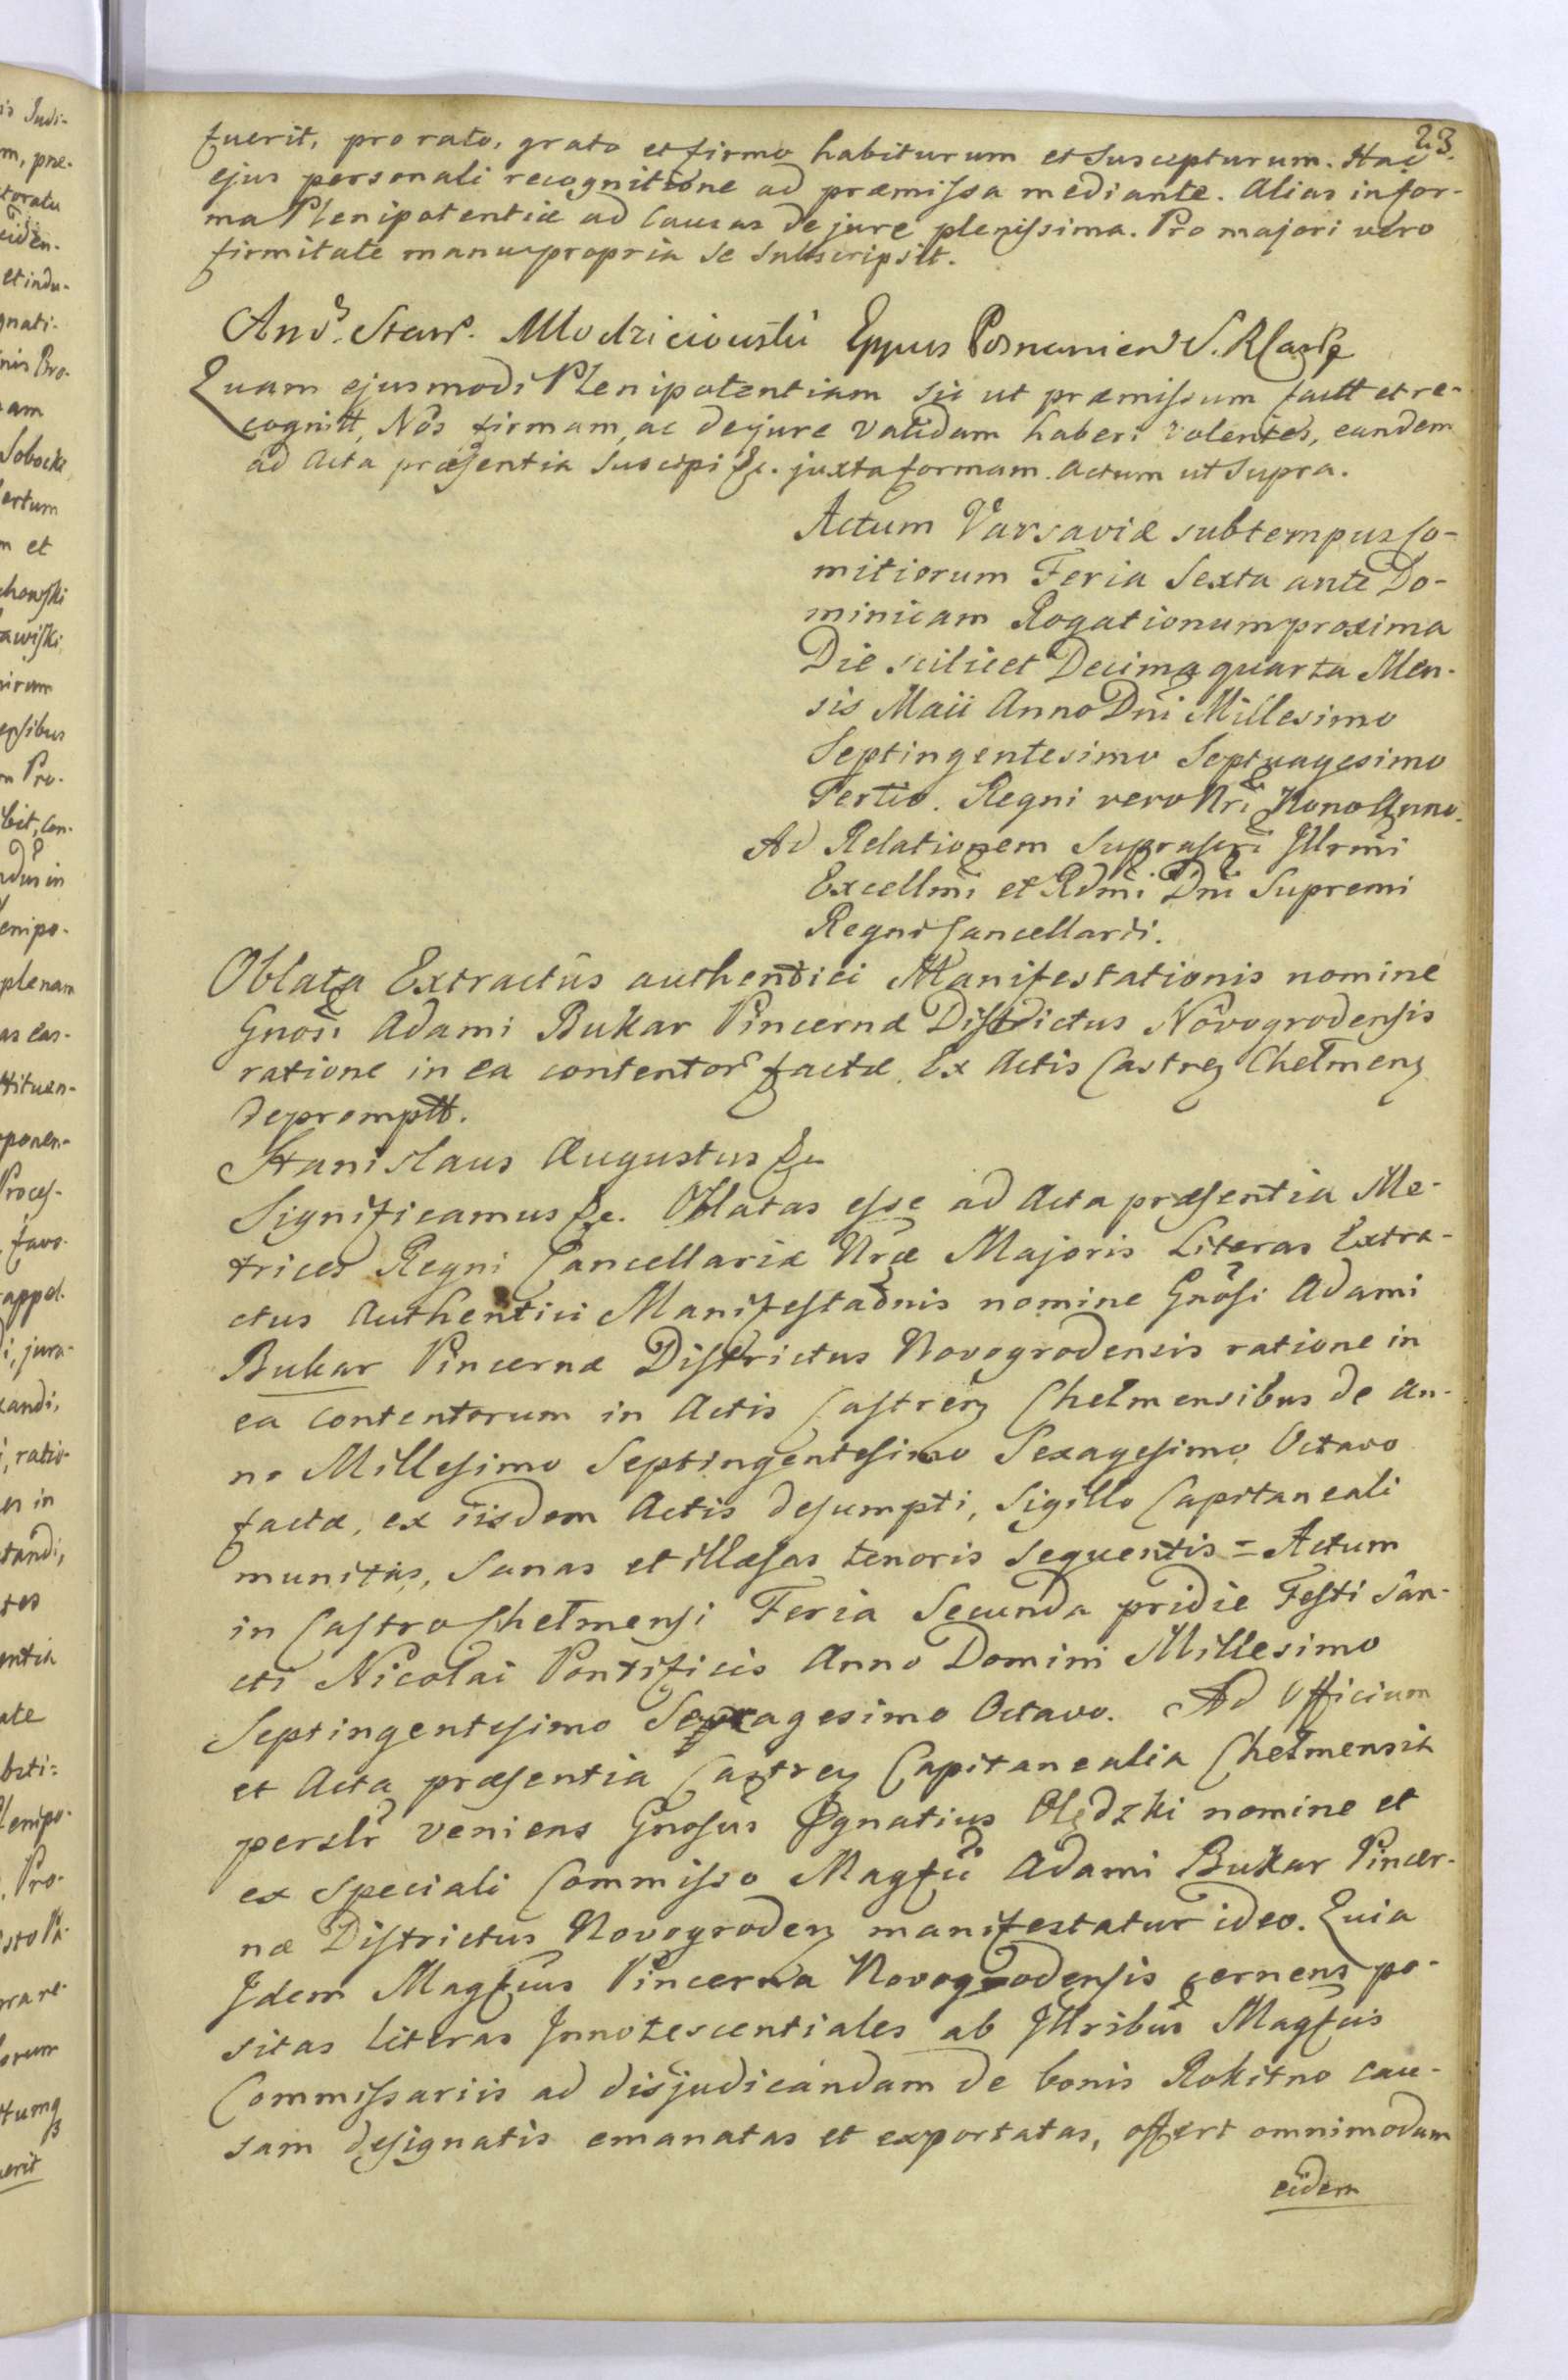 23.
fuerit, pro rato, grato et firmo habiturum et suscepturum. Hac
ejus personali recognitione ad præmissa mediante. Alias in for-
ma Plenipotentiæ ad Causas de jure plenissima. Pro majori vero
firmitate manu propria se subscripsit.
Quam ejusmodi Plenipotentiam sic ut præmissum factt et re-
cognitt, Nos firmam, ac de jure validam haberi volentes, eandem
ad Acta præsentia suscipi &c. juxta formam. Actum ut supra.
Actum Varsaviæ sub tempus Co-
mitiorum Feria Sexta ante Do-
minicam Rogationum proxima
Die scilicet Decima quarta Men-
sis Maii Anno Dni Millesimo
Septingentesimo Septuagesimo
Tertio. Regni vero Nri Nono Anno.
Ad Relationem suprascri Illrmi
Excellmi et Rdmi Dni Supremi
Regni Cancellarii.
Oblata Extractus authentici Manifestationis nomine
Gnosi Adami Bukar Pincernæ Districtus Novogrodensis
ratione in ea contentor factæ. Ex Actis Castren Chelmen
depromptt.
Stanislaus Augustus &c.
Significamus &c. Oblatas esse ad Acta præsentia Me-
trices Regni Cancellariæ Nræ Majoris Literas Extra-
ctus Authentici Manifestaonis nomine Gnosi Adami
Bukar Pincernæ Districtus Novogrodensis ratione in
ea contentorum in Actis Castren Chelmensibus de An-
no Millesimo Septingentesimo Sexagesimo Octavo
factæ, ex iisdem Actis desumpti, Sigillo Capitaneali
munitas, sanas et illæsas tenoris sequentis = Actum
in Castro Chelmensi Feria Secunda pridie Festi San-
cti Nicolai Pontificis Anno Domini Millesimo
Septingentesimo Sexagesimo Octavo. Ad Officium
et Acta præsentia Castren Capitanealia Chelmensia
perslr veniens Gnosus Ignatius Olędzki nomine et
ex speciali Commisso Magfci Adami Bukar Pincer-
næ Districtus Novogroden manifestatur ideo. Quia
Idem Magfcus Pincerna Novogrodensis cernens po-
sitas literas Innotescentiales ab Illribus Magfcis
Commissariis ad disjudicandam de bonis Rokitno cau-
sam designatis emanatas et exportatas, offert omnimodam
eidem